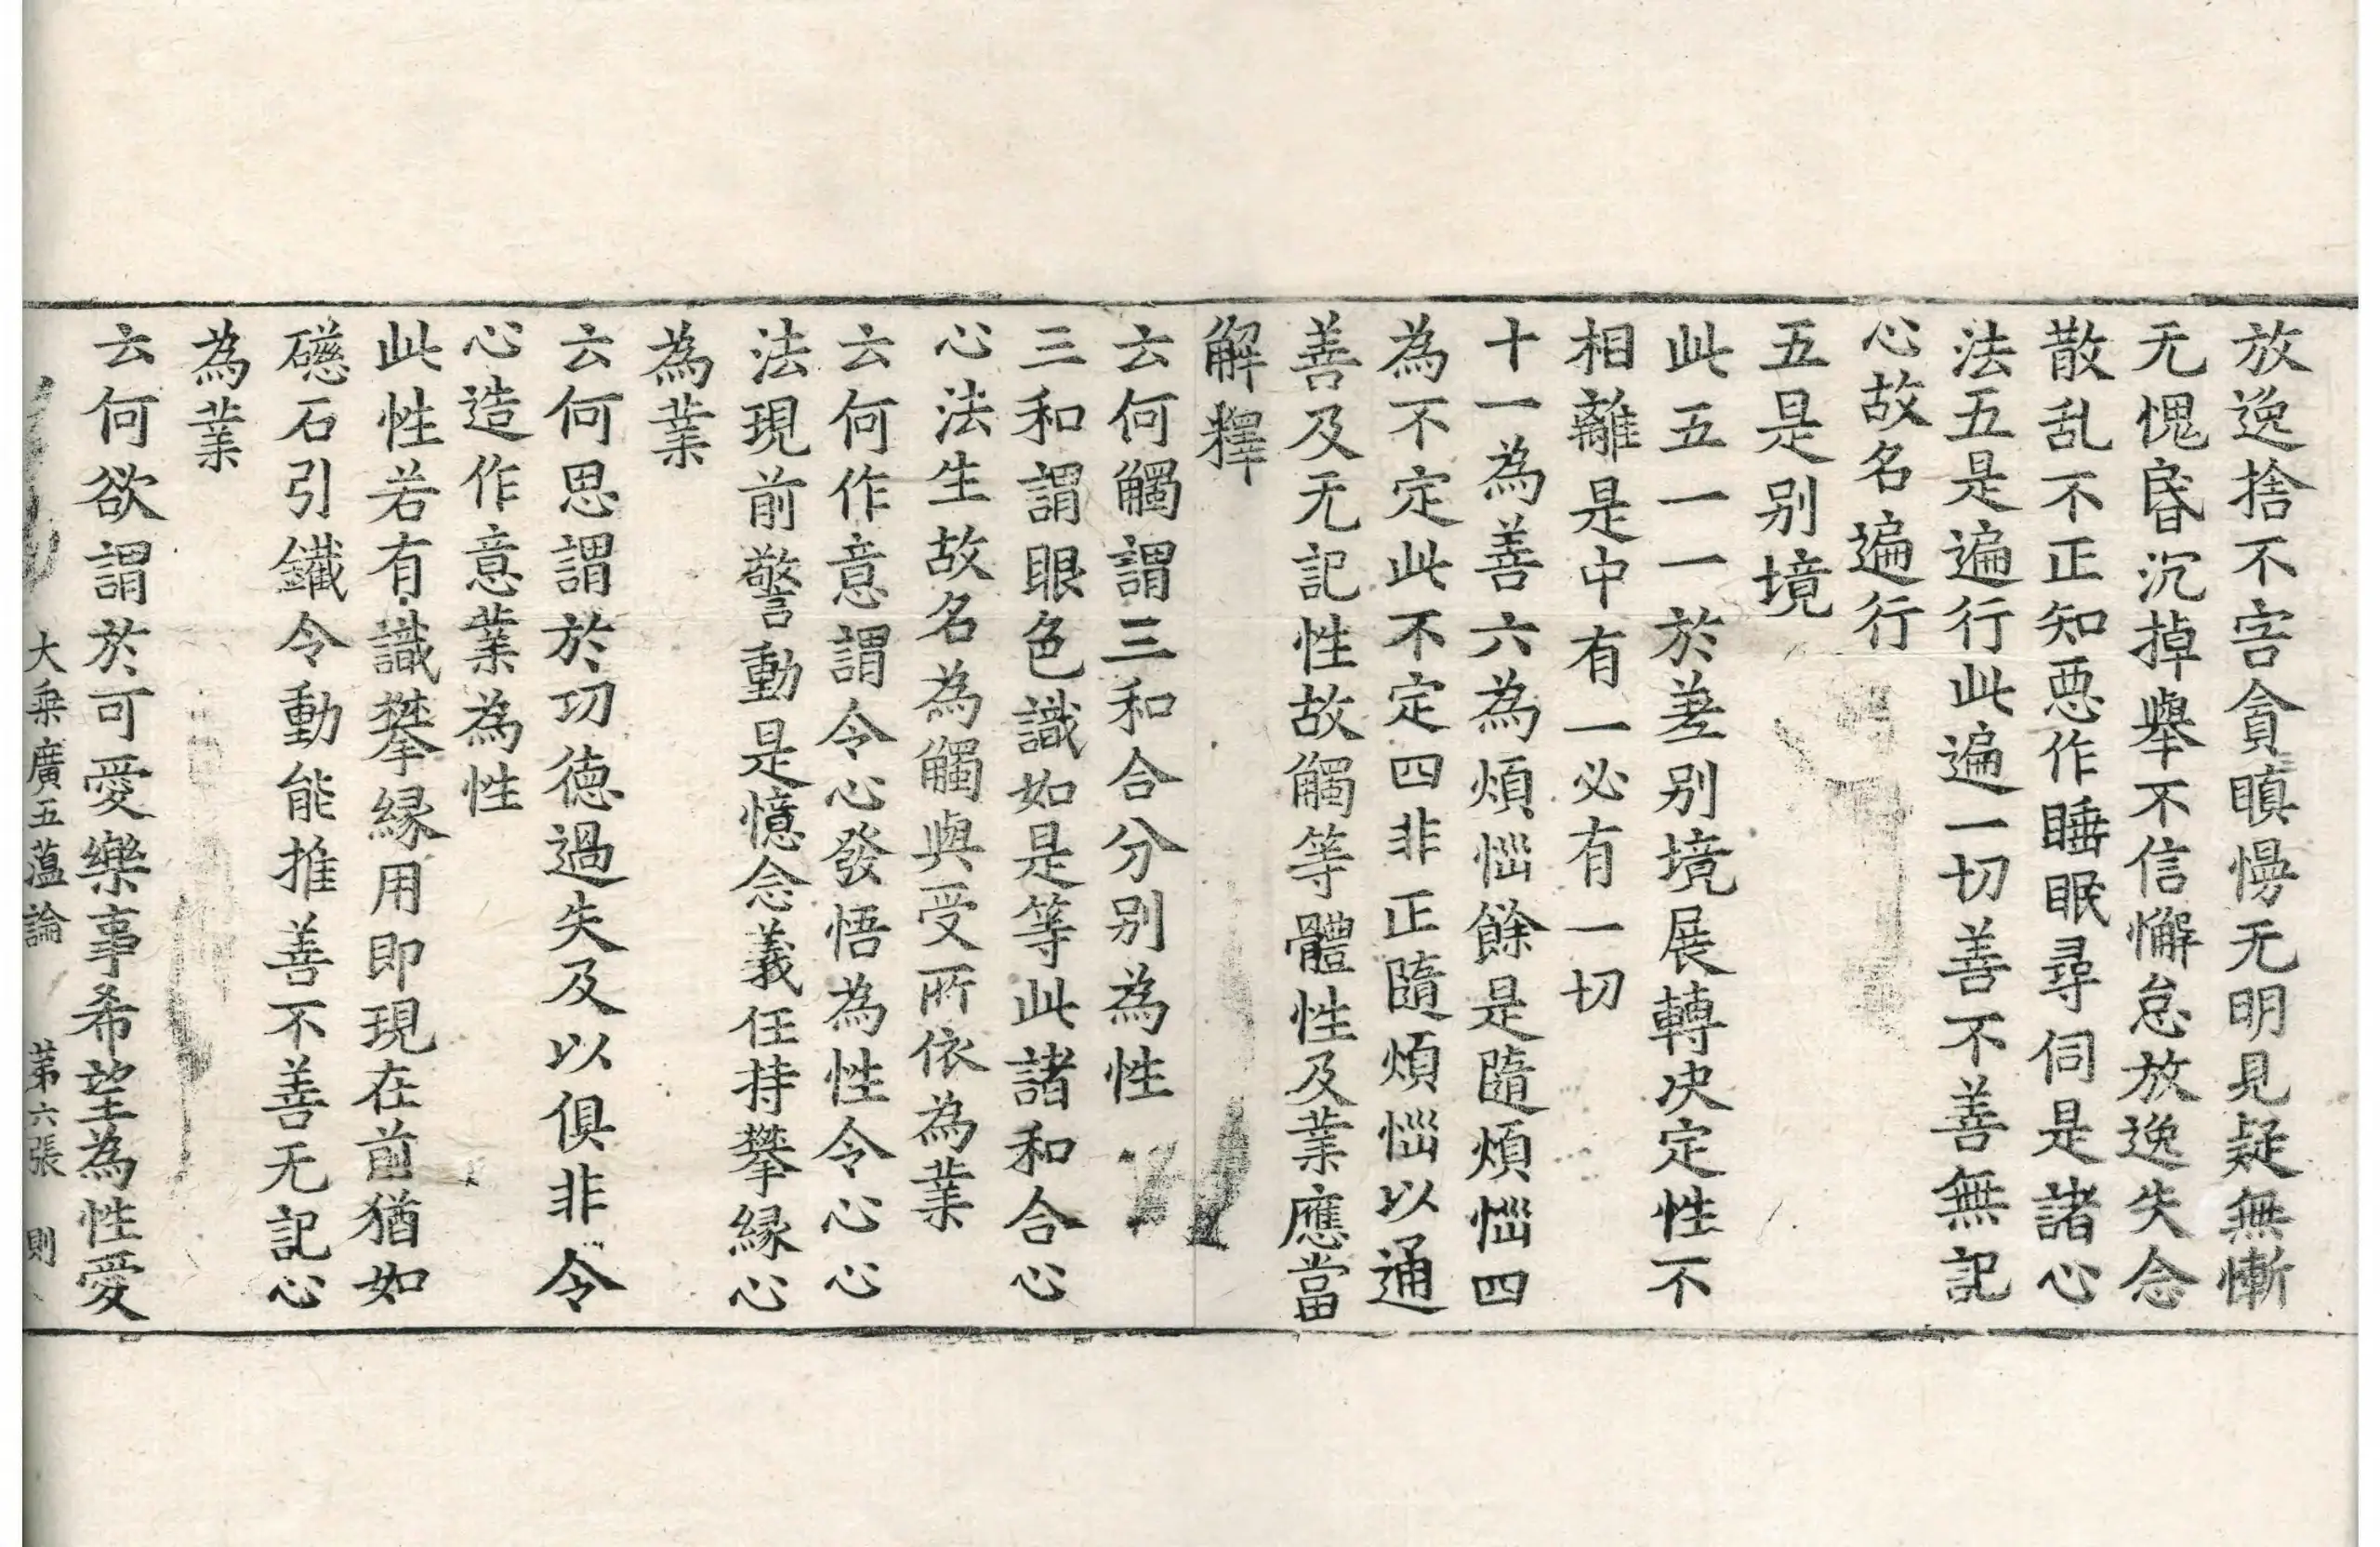 放逸捨不害貪瞋慢无明見疑無慚
无愧昏沉掉舉不信懈怠放逸失念
散乱不正知惡作睡眠尋伺是諸心
法五是遍行此遍一切善不善無記
心故名遍行
五是別境
此五一一於差別境展轉決定性不
相離是中有一必有一切
十一為善六為煩惱餘是隨煩惱四
為不定此不定四非正隨煩惱以通
善及无記性故觸等體性及業應當
解釋
云何觸謂三和合分別為性
三和謂眼色識如是等此諸和合心
心法生故名為觸與受所依為業
云何作意謂令心發悟為性令心心
法現前警動是憶念義任持攀緣心
為業
云何思謂於功德過失及以俱非令
心造作意業為性
此性若有識攀緣用即現在前猶如
礠石引鐵令動能推善不善无記心
為業
云何欲謂於可愛樂事希望為性愛
大乘廣五蕰論 第六張 則